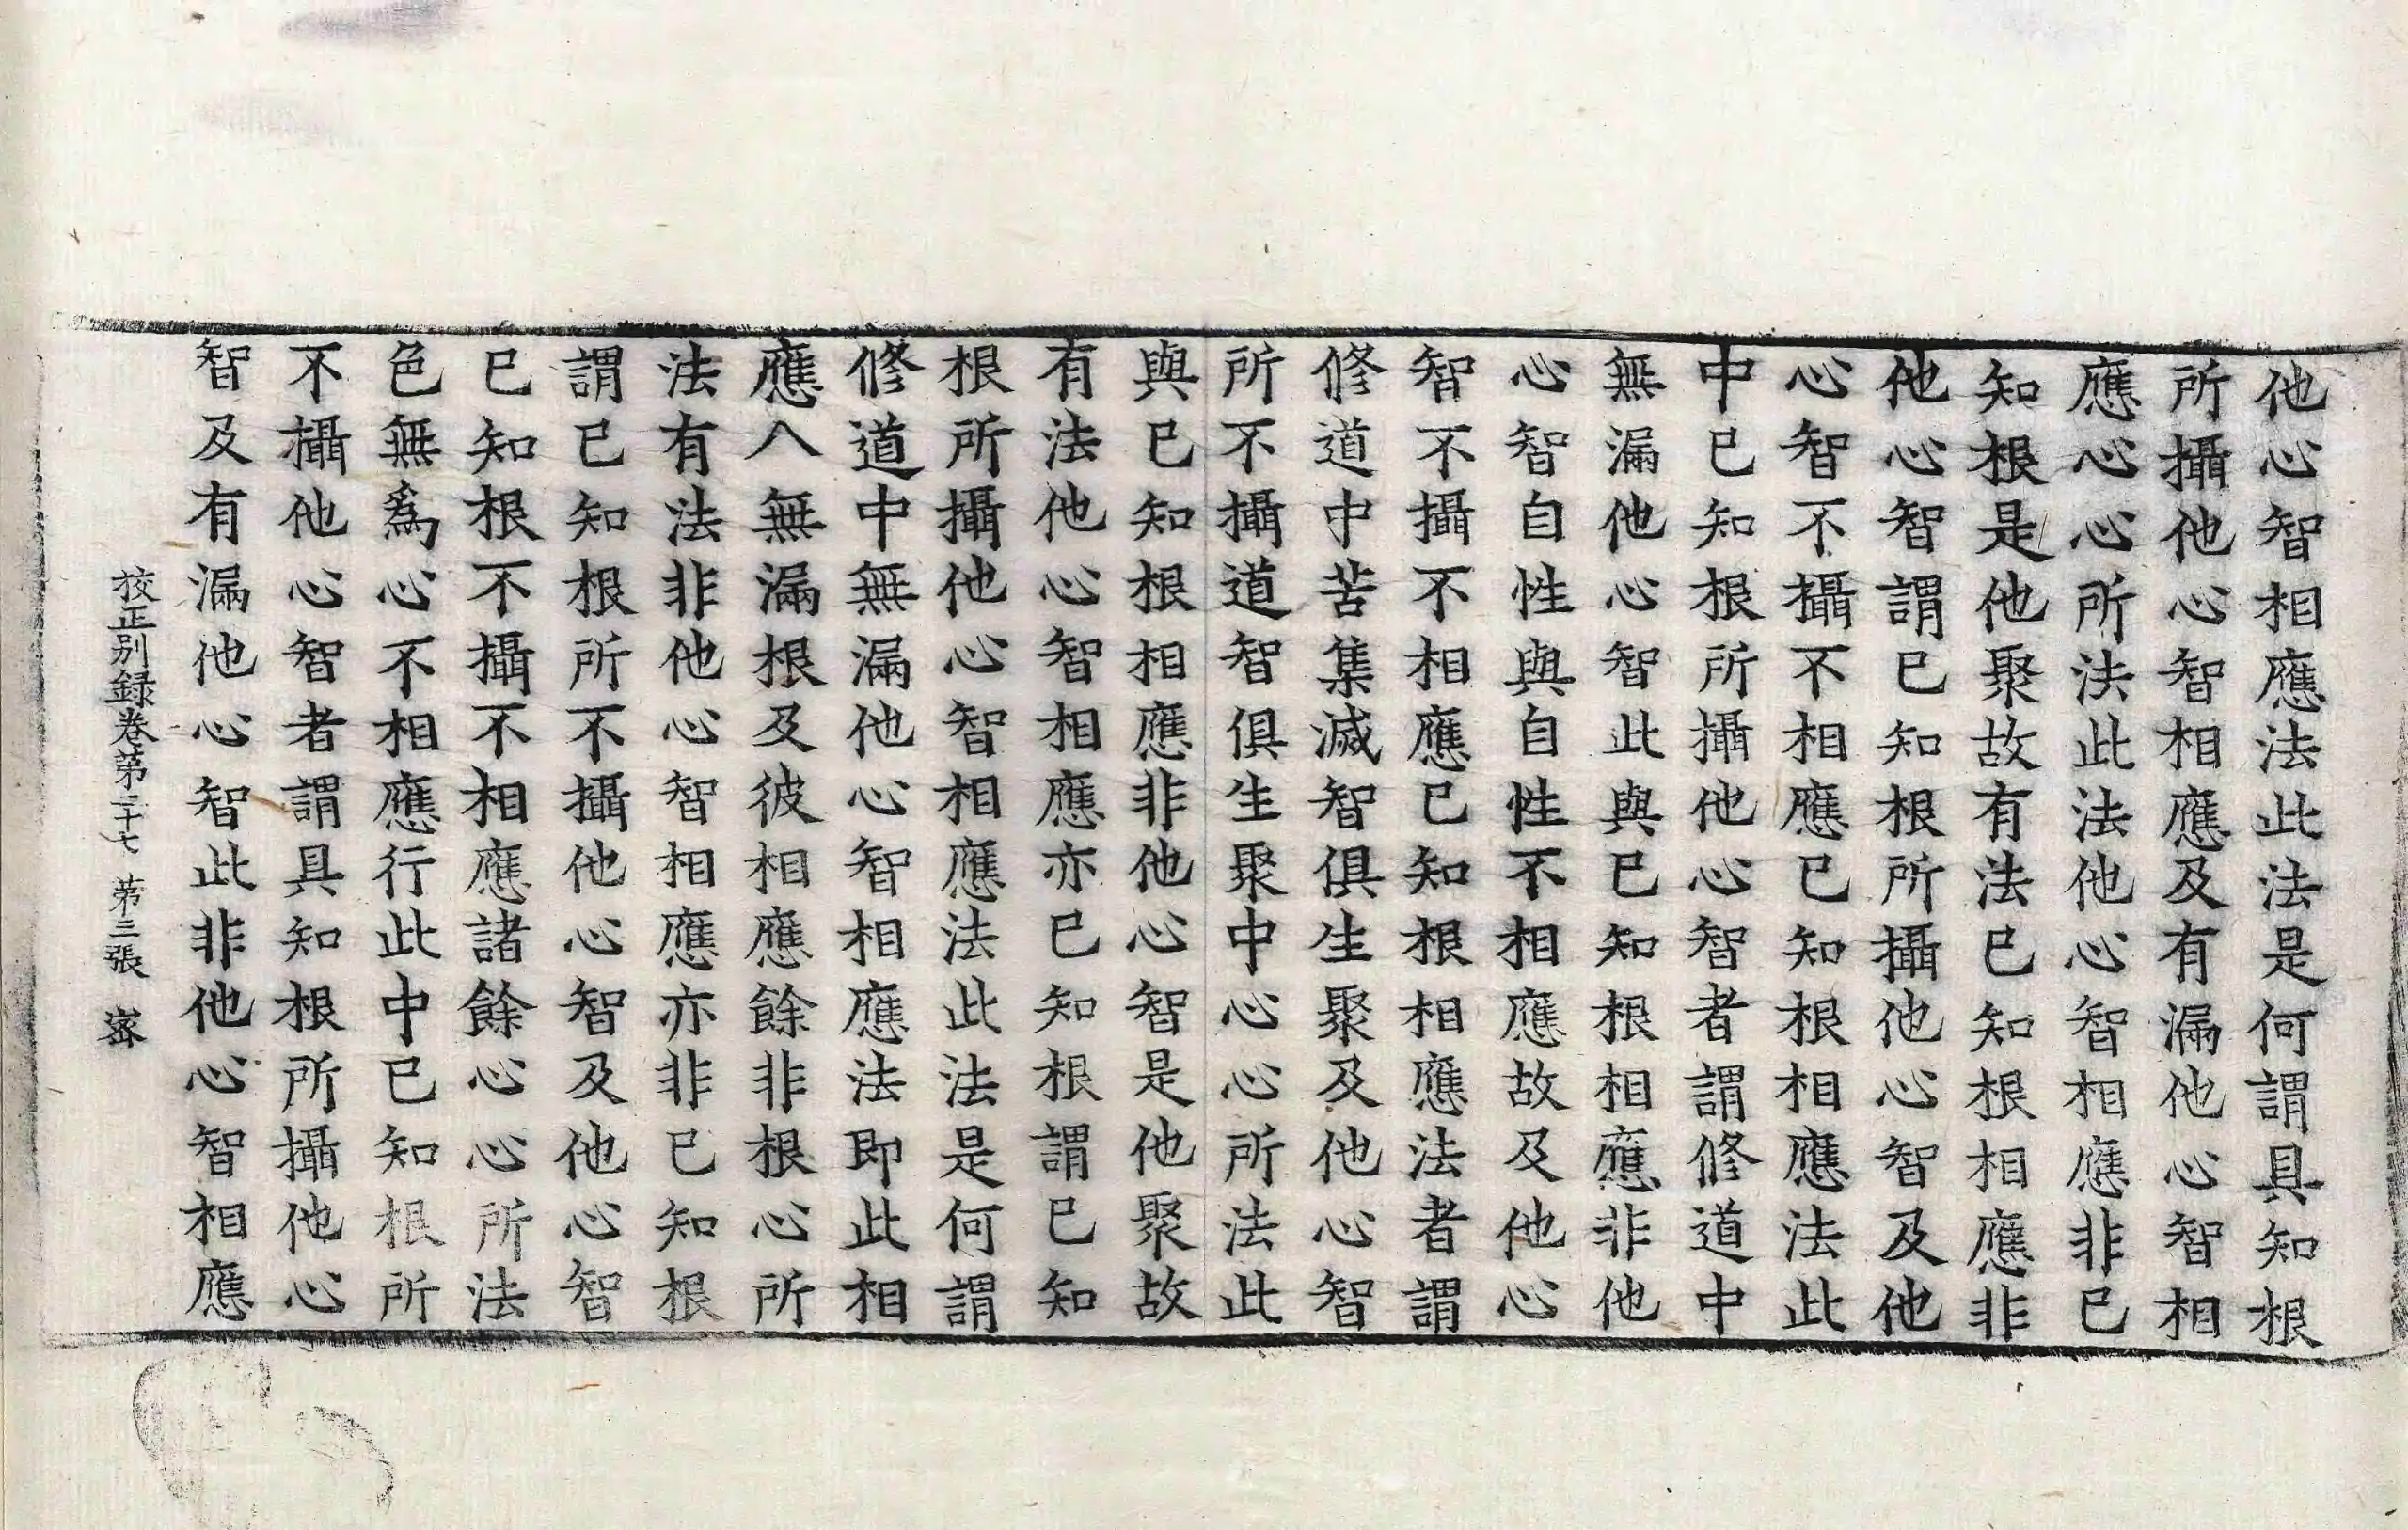 他心智相應法此法是何謂具知根
所攝他心智相應及有漏他心智相
應心心所法此法他心智相應非已
知根是他聚故有法已知根相應非
他心智謂已知根所攝他心智及他
心智不攝不相應已知根相應法此
中已知根所攝他心智者謂修道中
無漏他心智此與已知根相應非他
心智自性與自性不相應故及他心
智不攝不相應已知根相應法者謂
修道中苦集滅智俱生聚及他心智
所不攝道智俱生聚中心心所法此
與已知根相應非他心智是他聚故
有法他心智相應亦已知根謂已知
根所攝他心智相應法此法是何謂
修道中無漏他心智相應法即此相
應八無漏根及彼相應餘非根心所
法有法非他心智相應亦非已知根
謂已知根所不攝他心智及他心智
已知根不攝不相應諸餘心心所法
色無爲心不相應行此中已知根所
不攝他心智者謂具知根所攝他心
智及有漏他心智此非他心智相應
校正別録卷第二十七 第三張 宻